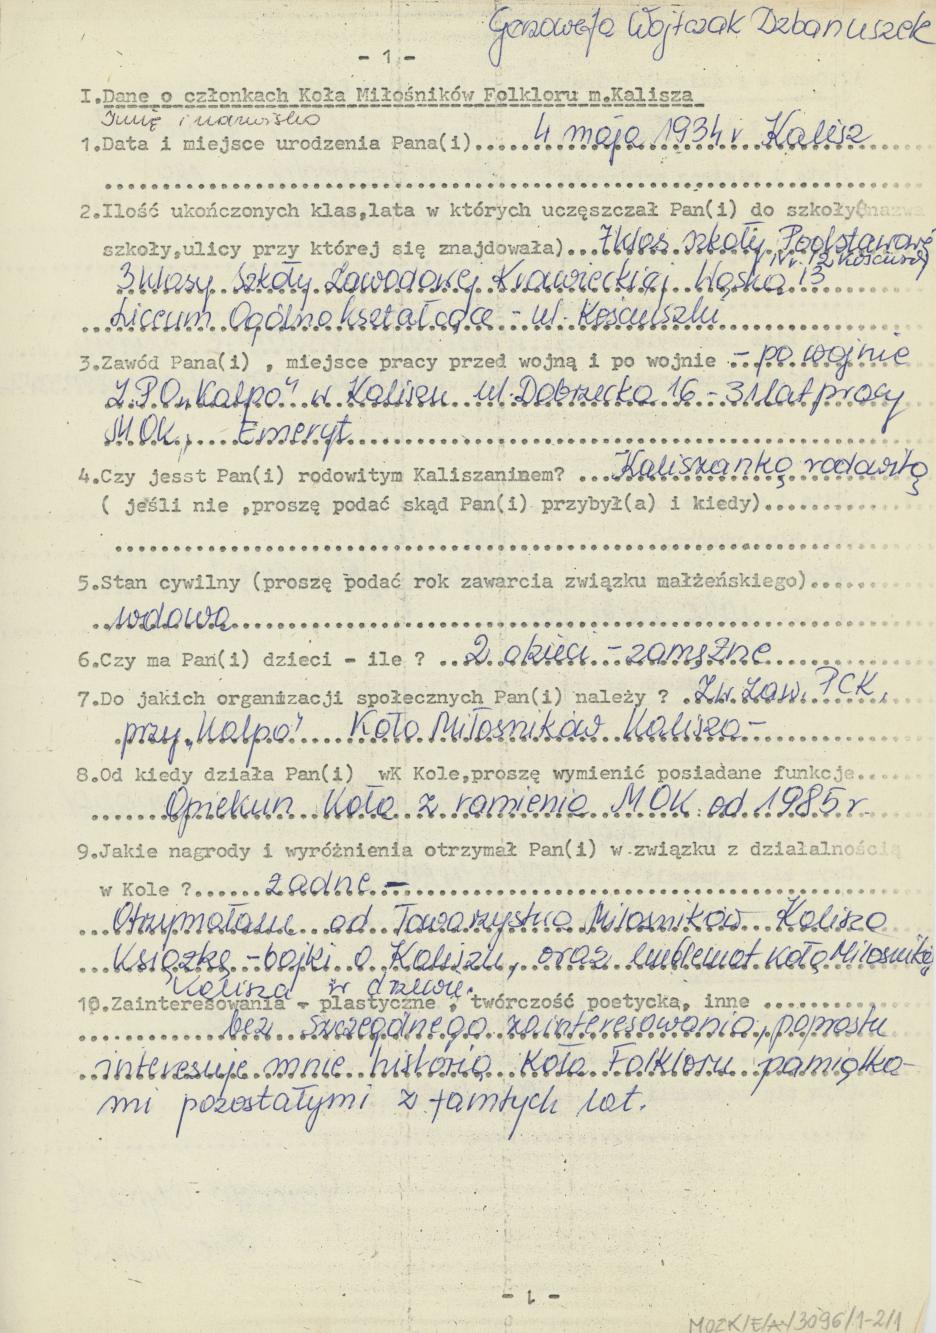 Genowefa Wojtczak Dzbanuszek
- 1 -
I.Dane o członkach Koła Miłośników Folkloru m.Kalisza
Imię i nazwisko
1.Data i miejsce urodzenia Pana(i).... 4 maja 1934 r Kalisz
2.Ilość ukończonych klas,lata w których uczęszczał Pan(i) do szkoły(nazwa
szkoły,ulicy przy której się znajdowała)... 7 klas szkoły Podstawowej
Nr. 12
3 klasy Szkoły Zawodowej Krawieckiej Wąska 13
Liceum Ogólnokształcące - ul. Kościuszki
3.Zawód Pana(i) , miejsce pracy przed wojną i po wojnie - po wojnie
Z.P.O „Kalpo" w Kaliszu ul. Dobrzecka 16 - 31 lat pracy
MOK, Emeryt
4.Czy jesst Pan(i) rodowitym Kaliszaninem? ... Kaliszanką rodowitą
( jeśli nie ,proszę podać skąd Pan(i) przybył(a) i kiedy)......
5.Stan cywilny (proszę podać rok zawarcia związku małżeńskiego)....
wdowa
6.Czy ma Pań(i) dzieci - ile ? .. 2 dzieci - zamężne
7.Do jakich organizacji społecznych Pan(i) należy ? . Zw. Zaw. PCK,
przy „Kalpo" Koło Miłośników Kalisza -
8.Od kiedy działa Pan(i) wK Kole,proszę wymienić posiadane funkcje....
Opiekun Koła z ramienia MOK od 1985 r.
9.Jakie nagrody i wyróżnienia otrzymał Pan(i) w związku z działalnością
w Kole ?...... żadne -
Otrzymałam od Towarzystwa Miłosników Kalisza
Książkę - bajki o Kaliszu, oraz emblemat koła Miłosników
Kalisza w drzewie.
10.Zainteresowania - plastyczne , twórczość poetycka, inne ............
bez szczególnego zainteresowania, poprostu
interesuje mnie historia Koła Folkloru pamiątka-
mi pozostałymi z tamtych lat.
- 1 -
MOZK/E/A/3096/1-2/1